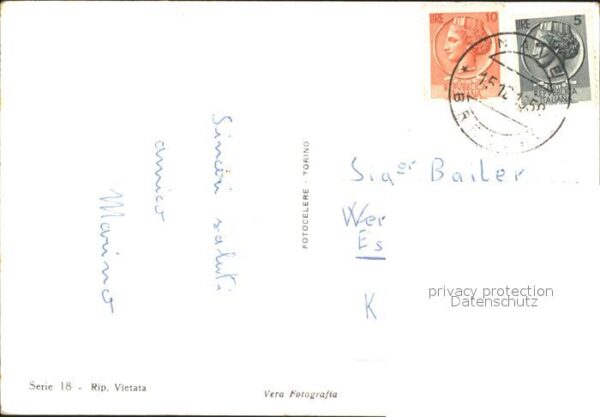 LIRE 10
LIRE 5
Sinceri saluti
amico
Marino
FOTOCELERE - TORINO
Siger Bailer
Wer
Es
K
privacy protection
Datenschutz
Serie 18 - Rip. Vietata
Vera Fotografia